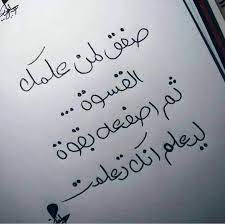 صفق لمن علمك
القسوة ...
ثم اصفعه بقوة
ليعلم انك تعلمت